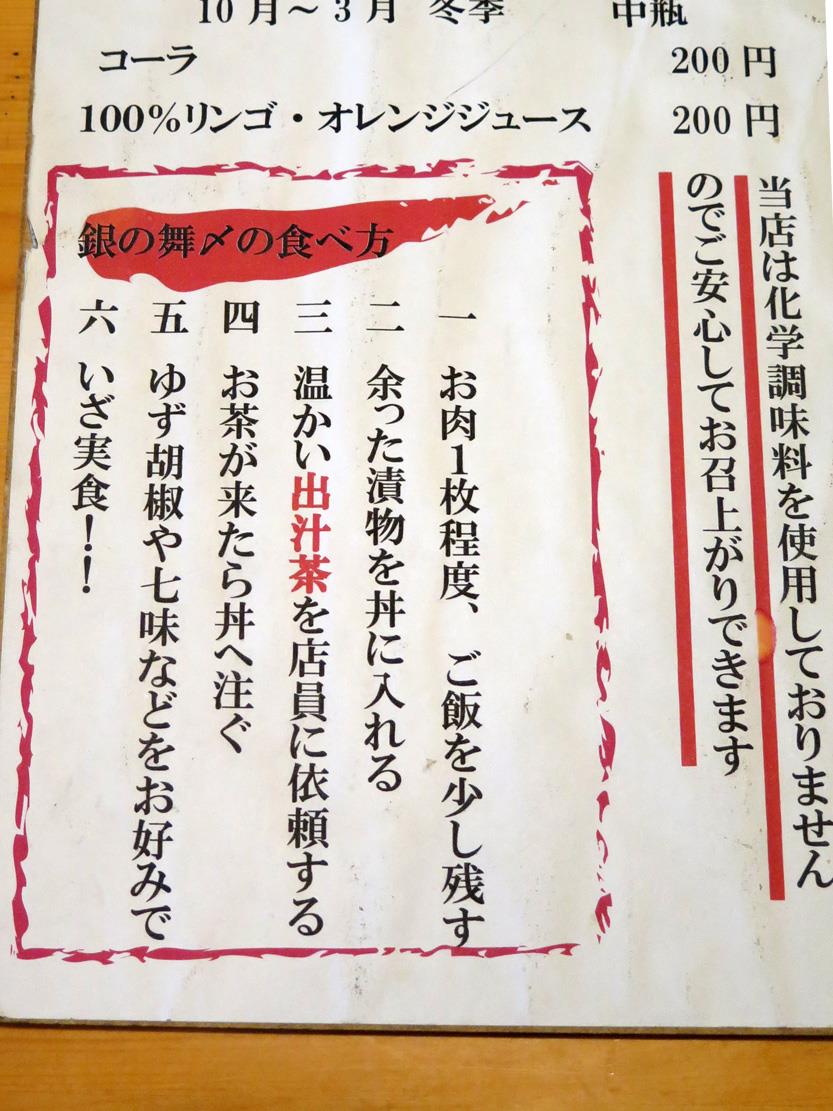 10月〜3月 冬季 中瓶
コーラ 200円
100%リンゴ・オレンジジュース 200円
当店は化学調味料を使用しておりません
のでご安心してお召上がりできます
銀の舞〆の食べ方
一 お肉1枚程度、ご飯を少し残す
二 余った漬物を丼に入れる
三 温かい出汁茶を店員に依頼する
四 お茶が来たら丼へ注ぐ
五 ゆず胡椒や七味などをお好みで
六 いざ実食！！